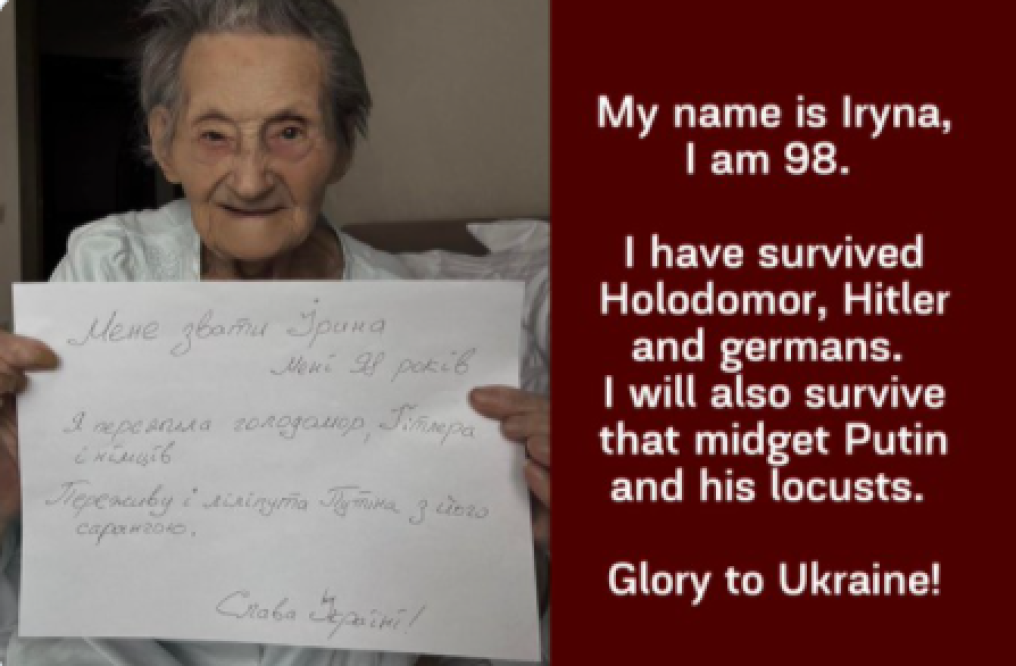 Мене звати Ірина
Мені 98 років
Я пережила голодомор, Гітлера
і німців
Переживу і ліліпута Путіна з його
саранчою.
Слава Україні!
My name is Iryna,
I am 98.
I have survived
Holodomor, Hitler
and germans.
I will also survive
that midget Putin
and his locusts.
Glory to Ukraine!